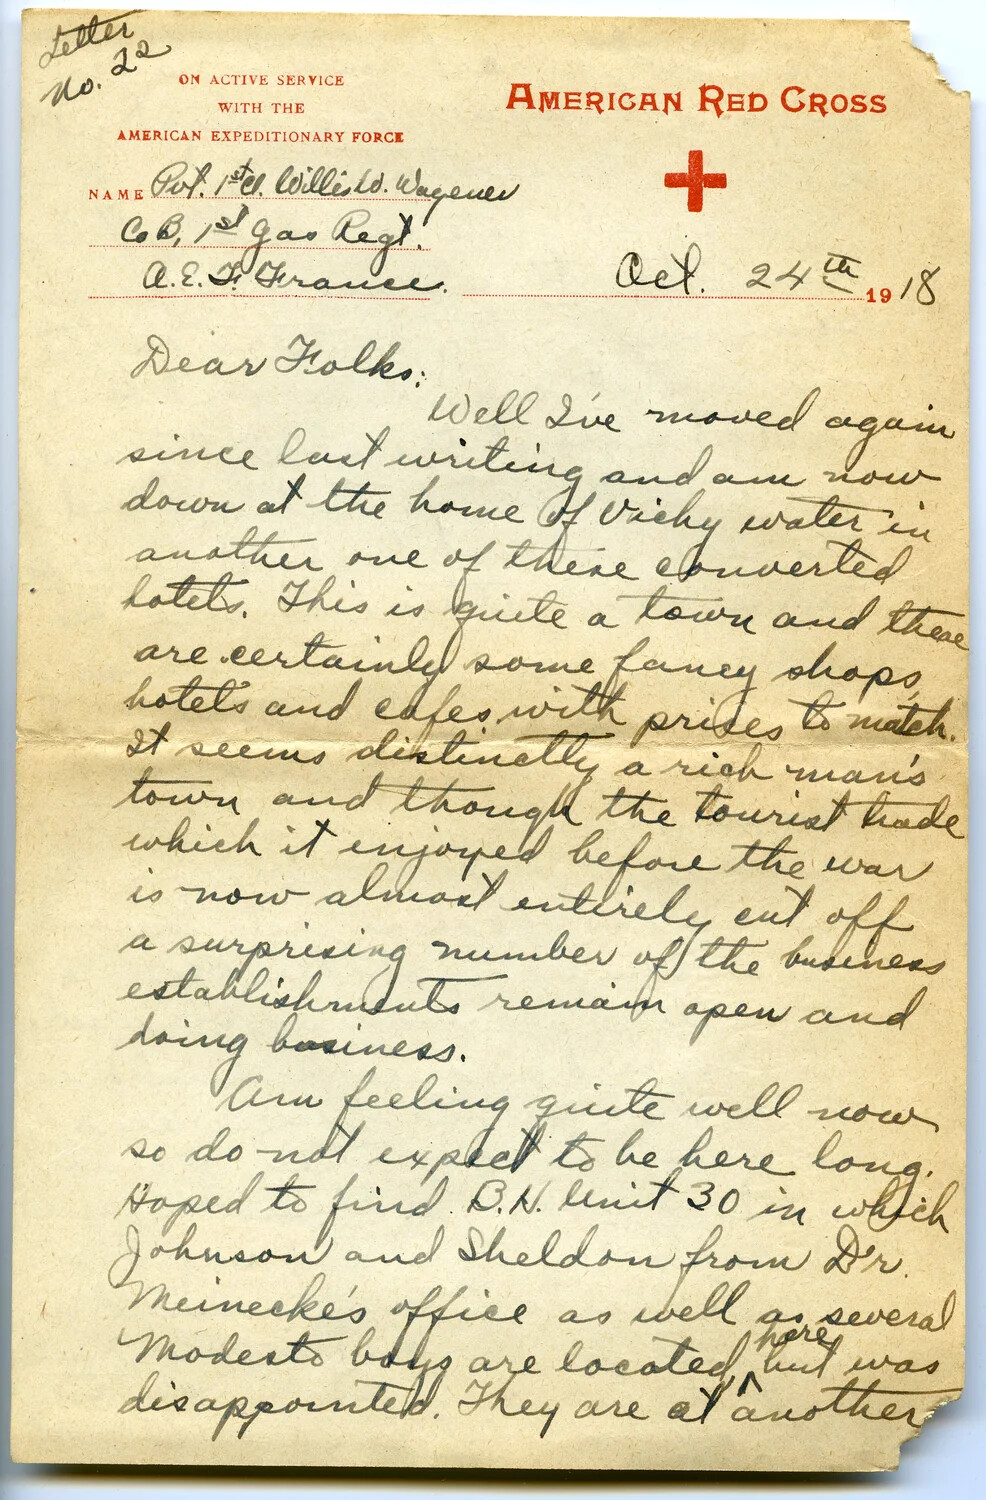 Letter
No. 22
ON ACTIVE SERVICE
WITH THE
AMERICAN EXPEDITIONARY FORCE
AMERICAN RED CROSS
NAME Pvt. 1st Cl. Willis W. Wagener
Co B, 1st Gas Regt.
A.E.F. France.
Oct. 24th 1918
Dear Folks:
Well I've moved again
since last writing and am now
down at the home of Vichy water in
another one of these converted
hotels. This is quite a town and there
are certainly some fancy shops,
hotels and cafes with prises to match.
It seems distinctly a rich man's
town and though the tourist trade
which it injoyed before the war
is now almost entirely cut off
a surprising number of the business
establishments remain open and
doing business.
Am feeling quite well now
so do not expect to be here long.
Hoped to find B.H. Unit 30 in which
Johnson and Sheldon from Dr.
Meinecke's office as well as several
Modesto boys are located, here but was
disappointed. They are at another